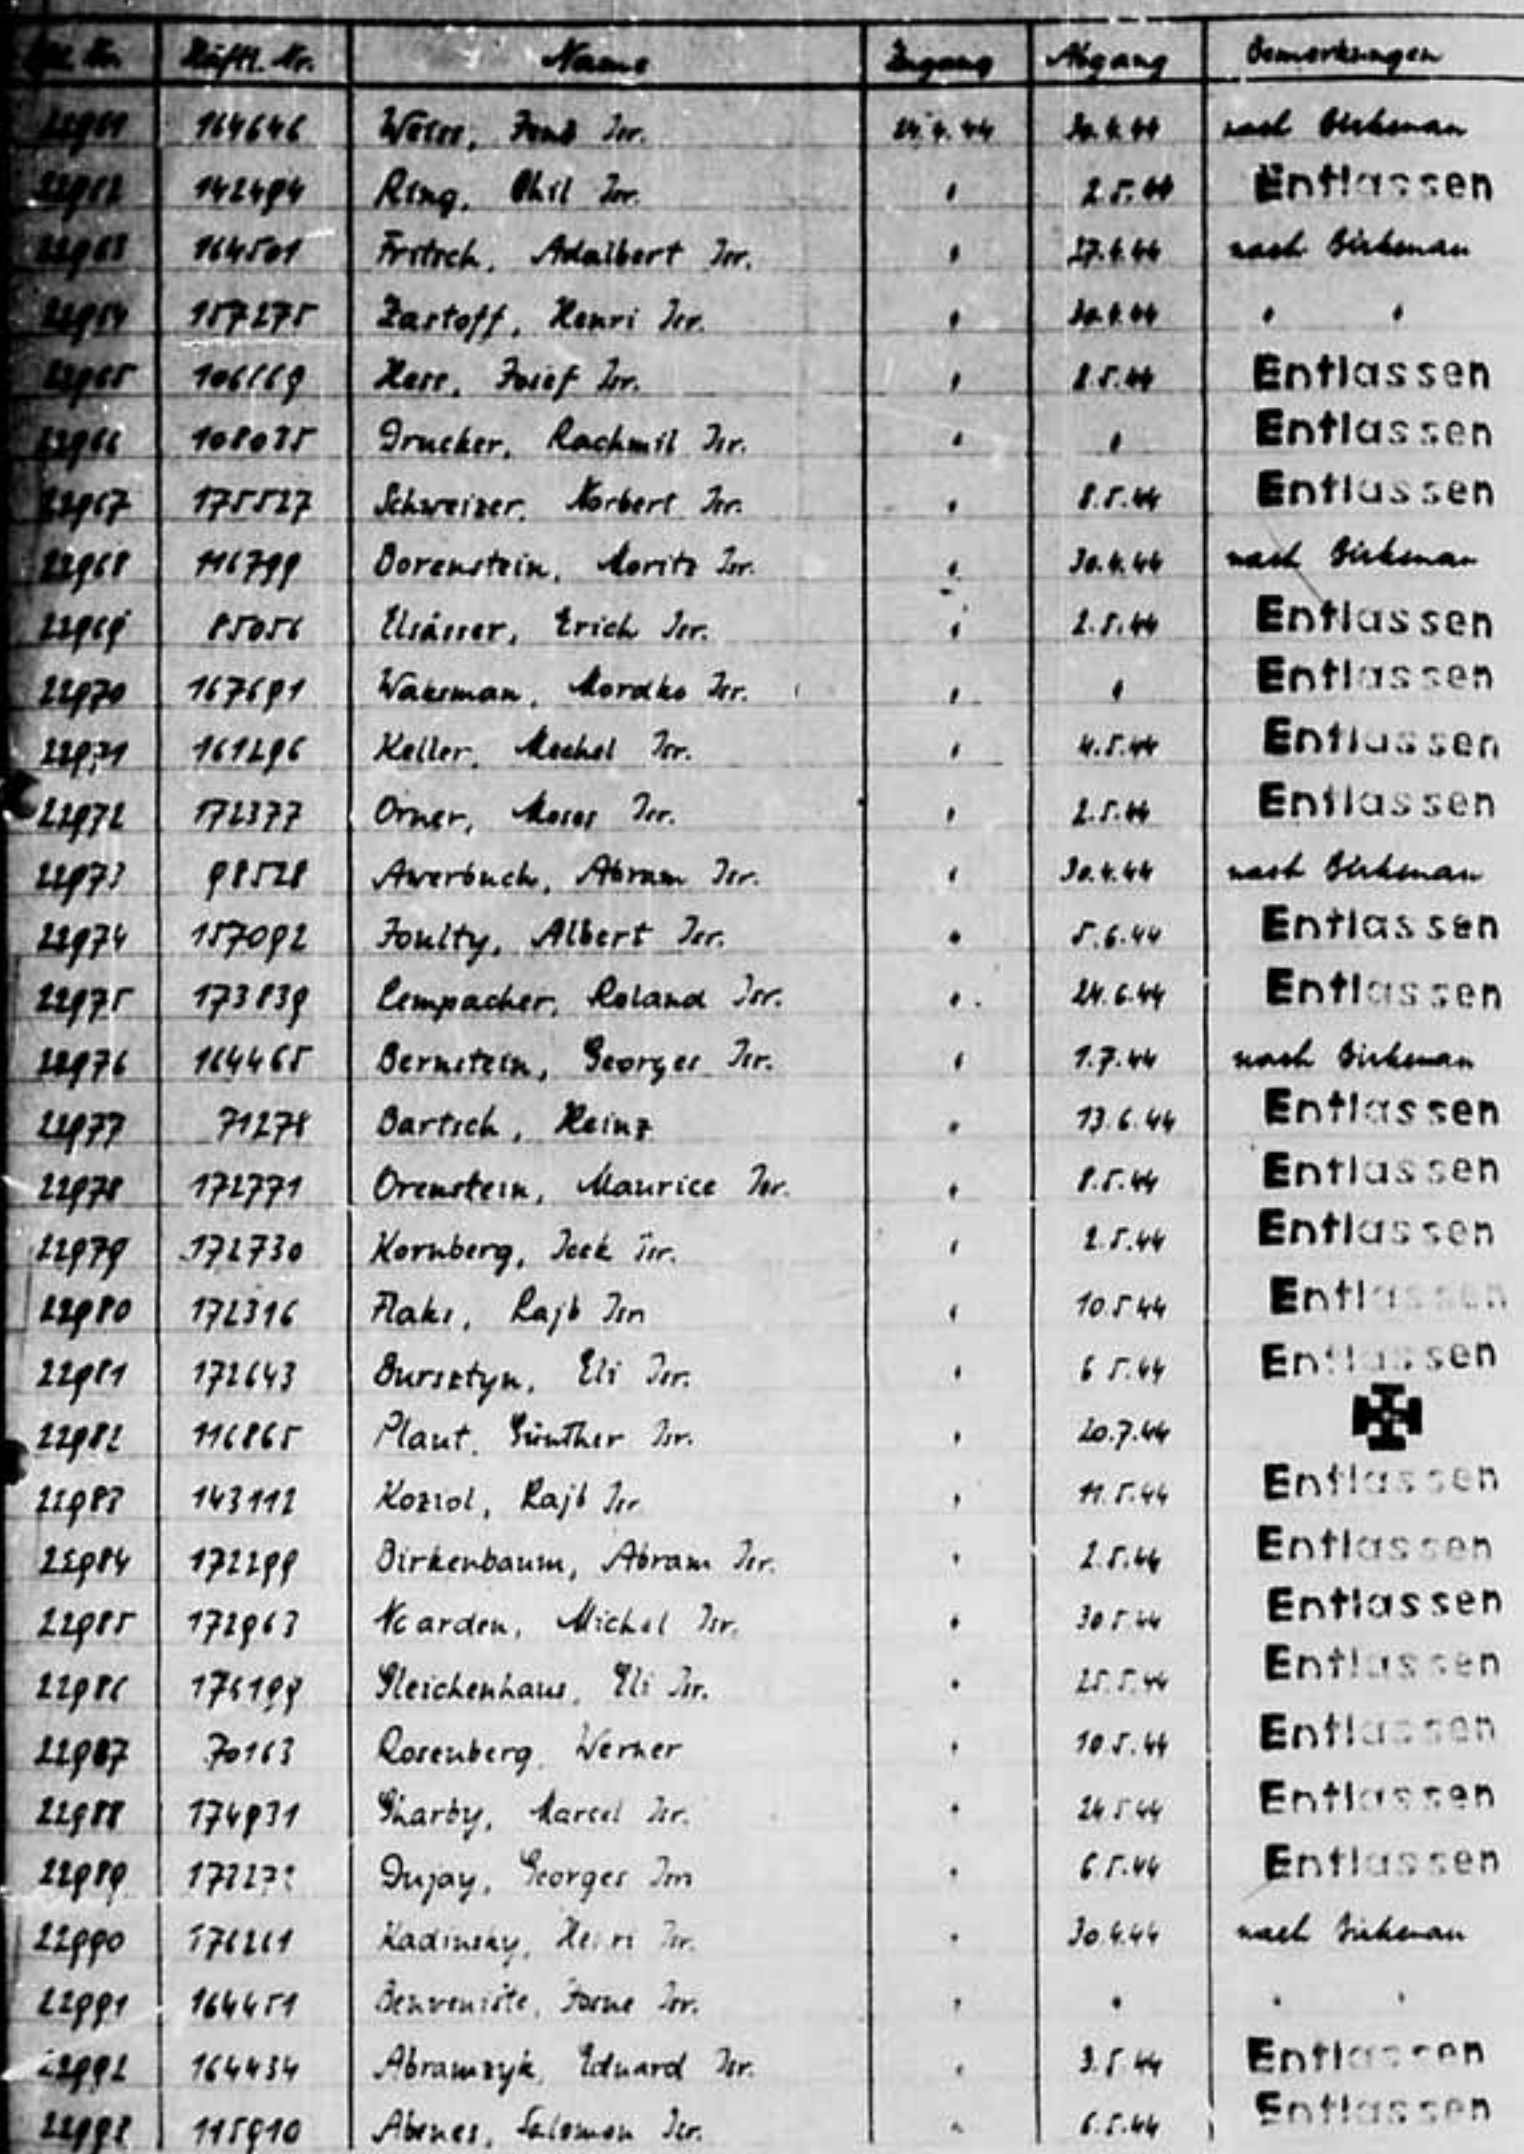 Häftl. Nr. Name Zugang Abgang Bemerkungen
22961 164646 Isr. 24.4.44 30.4.44 nach Birkenau
22962 142494 Ring, Isr. " 2.5.44 Entlassen
22963 164501 Fritsch, Adalbert Isr. " 27.4.44 nach Birkenau
22964 157275 Zastoff, Henri Isr. " 30.4.44 " "
22965 Josef Isr. " 8.5.44 Entlassen
22966 108035 Drucker, Rachmil Isr. " " Entlassen
22967 175527 Schweizer, Norbert Isr. " 8.5.44 Entlassen
22968 116799 Borenstein, Moritz Isr. " 30.4.44 nach Birkenau
22969 85056 Elsässer, Erich Isr. " 2.5.44 Entlassen
22970 167691 Waksman, Mordko Isr. " " Entlassen
22971 161296 Keller, Mechel Isr. " 4.5.44 Entlassen
22972 172377 Orner, Moses Isr. " 2.5.44 Entlassen
22973 98528 Awerbuch, Abram Isr. " 30.4.44 nach Birkenau
22974 157092 Foulty, Albert Isr. " 5.6.44 Entlassen
22975 173839 Lempacher, Roland Isr. " 24.6.44 Entlassen
22976 164465 Bernstein, Georges Isr. " 1.7.44 nach Birkenau
22977 71278 Bartsch, Heinz " 13.6.44 Entlassen
22978 172771 Orenstein, Maurice Isr. " 8.5.44 Entlassen
22979 172730 Kornberg, Icek Isr. " 2.5.44 Entlassen
22980 172316 Flaks, Lajb Isr. " 10.5.44 Entlassen
22981 172643 Bursztyn, Eli Isr. " 6.5.44 Entlassen
22982 116865 Plaut, Günther Isr. " 20.7.44
22983 143112 Koziol, Lajb Isr. " 11.5.44 Entlassen
22984 172299 Birkenbaum, Abram Isr. " 2.5.44 Entlassen
22985 172963 Michel Isr. " 30.5.44 Entlassen
22986 176199 Gleichenhaus, Eli Isr. " 25.5.44 Entlassen
22987 70163 Rosenberg, Werner " 10.5.44 Entlassen
22988 174931 Gharby, Marcel Isr. " 24.5.44 Entlassen
22989 Dujay, Georges Isr. " 6.5.44 Entlassen
22990 176261 Kadinsky, Henri Isr. " 30.4.44 nach Birkenau
22991 164451 Benveniste, Isr. " " " "
22992 164434 Abramzyk, Eduard Isr. " 3.5.44 Entlassen
22993 115910 Abenes, Salomon Isr. " 6.5.44 Entlassen